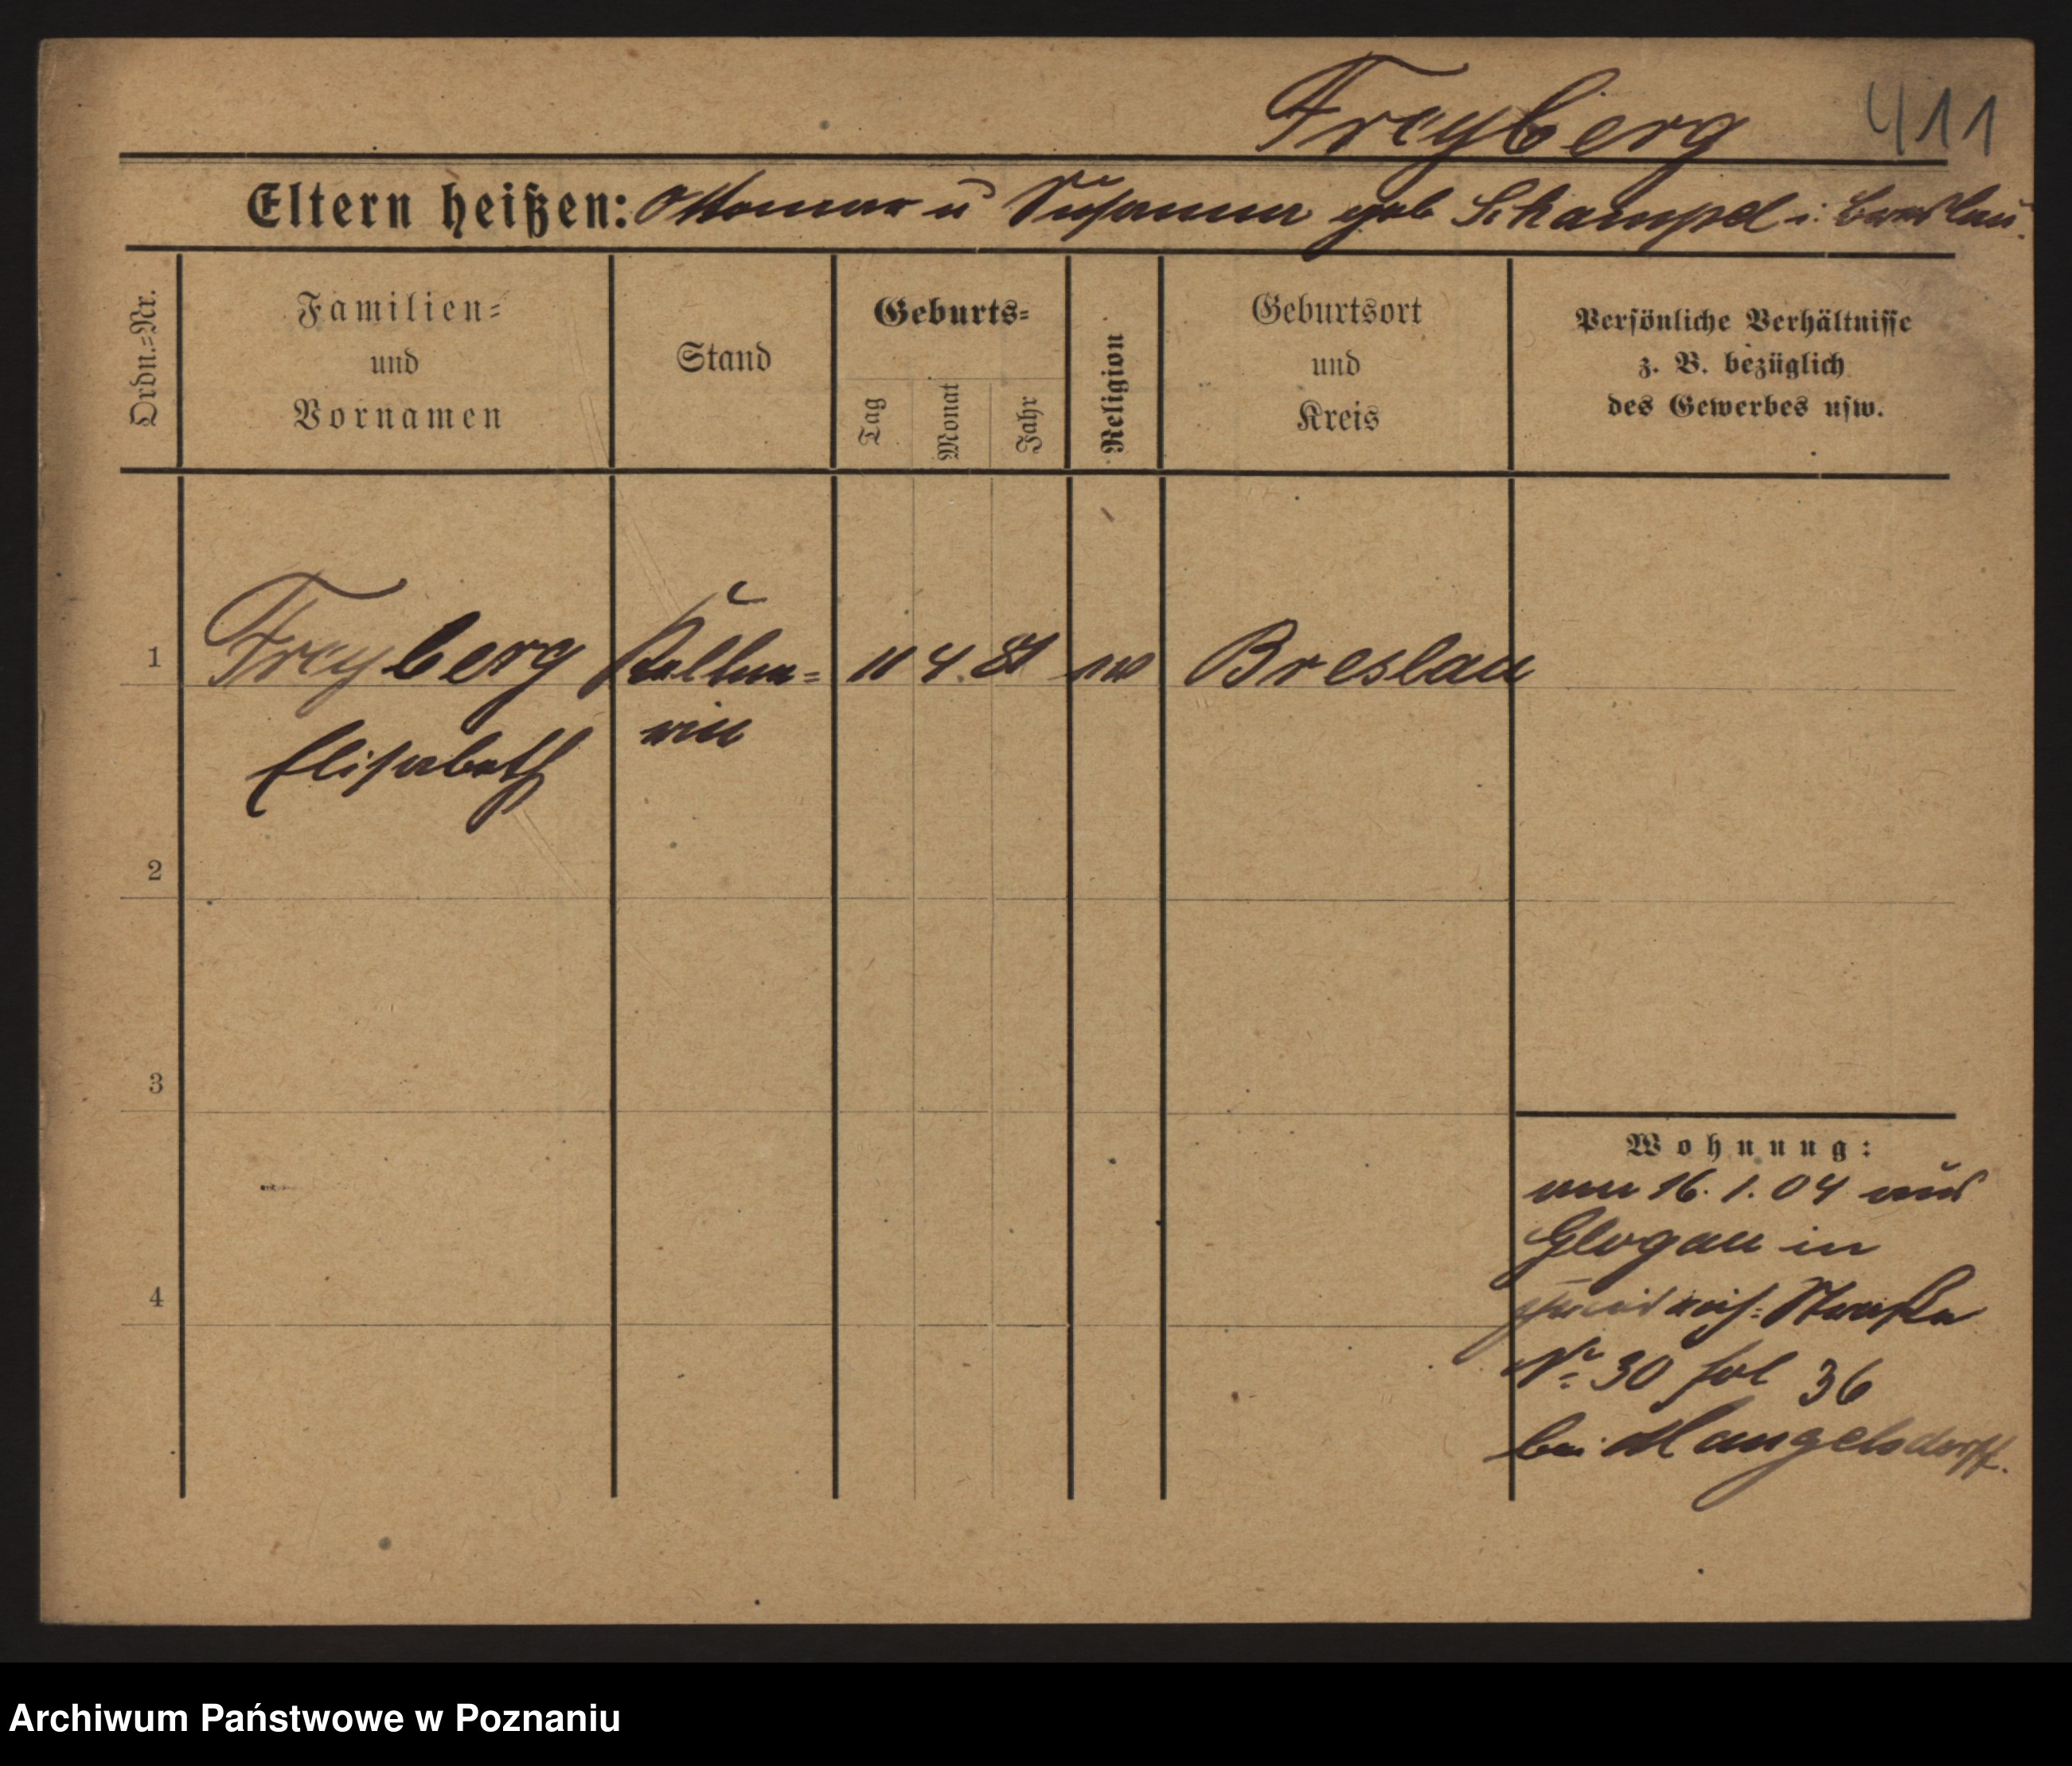 Freyberg 411
Eltern heißen: Ottomar u Susanna geb Schampel i. Breslau.
Ordn.-Nr.
Familien-
und
Vornamen
Stand
Geburts-
Tag
Monat
Jahr
Religion
Geburtsort
und
Kreis
Persönliche Verhältnisse
z. B. bezüglich
des Gewerbes usw.
1 Freyberg Kellne- 11 4. 81 Breslau
rin
Elisabeth
2
3
4
Wohnung:
vom 16. 1. 04 aus
Glogau in
Straße
No 30 fol 36
bei Mangelsdorff.
Archiwum Państwowe w Poznaniu